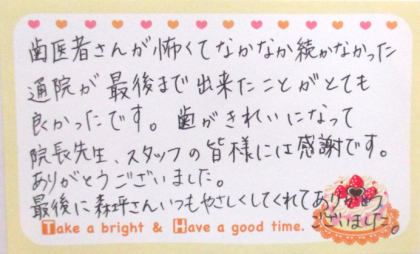 歯医者さんが怖くてなかなか続かなかった
通院が最後まで出来たことがとても
良かったです。歯がきれいになって
院長先生、スタッフの皆様には感謝です。
ありがとうございました。
最後に森坪さんいつもやさしくしてくれてありがとう
ございました。
Take a bright & Have a good time.